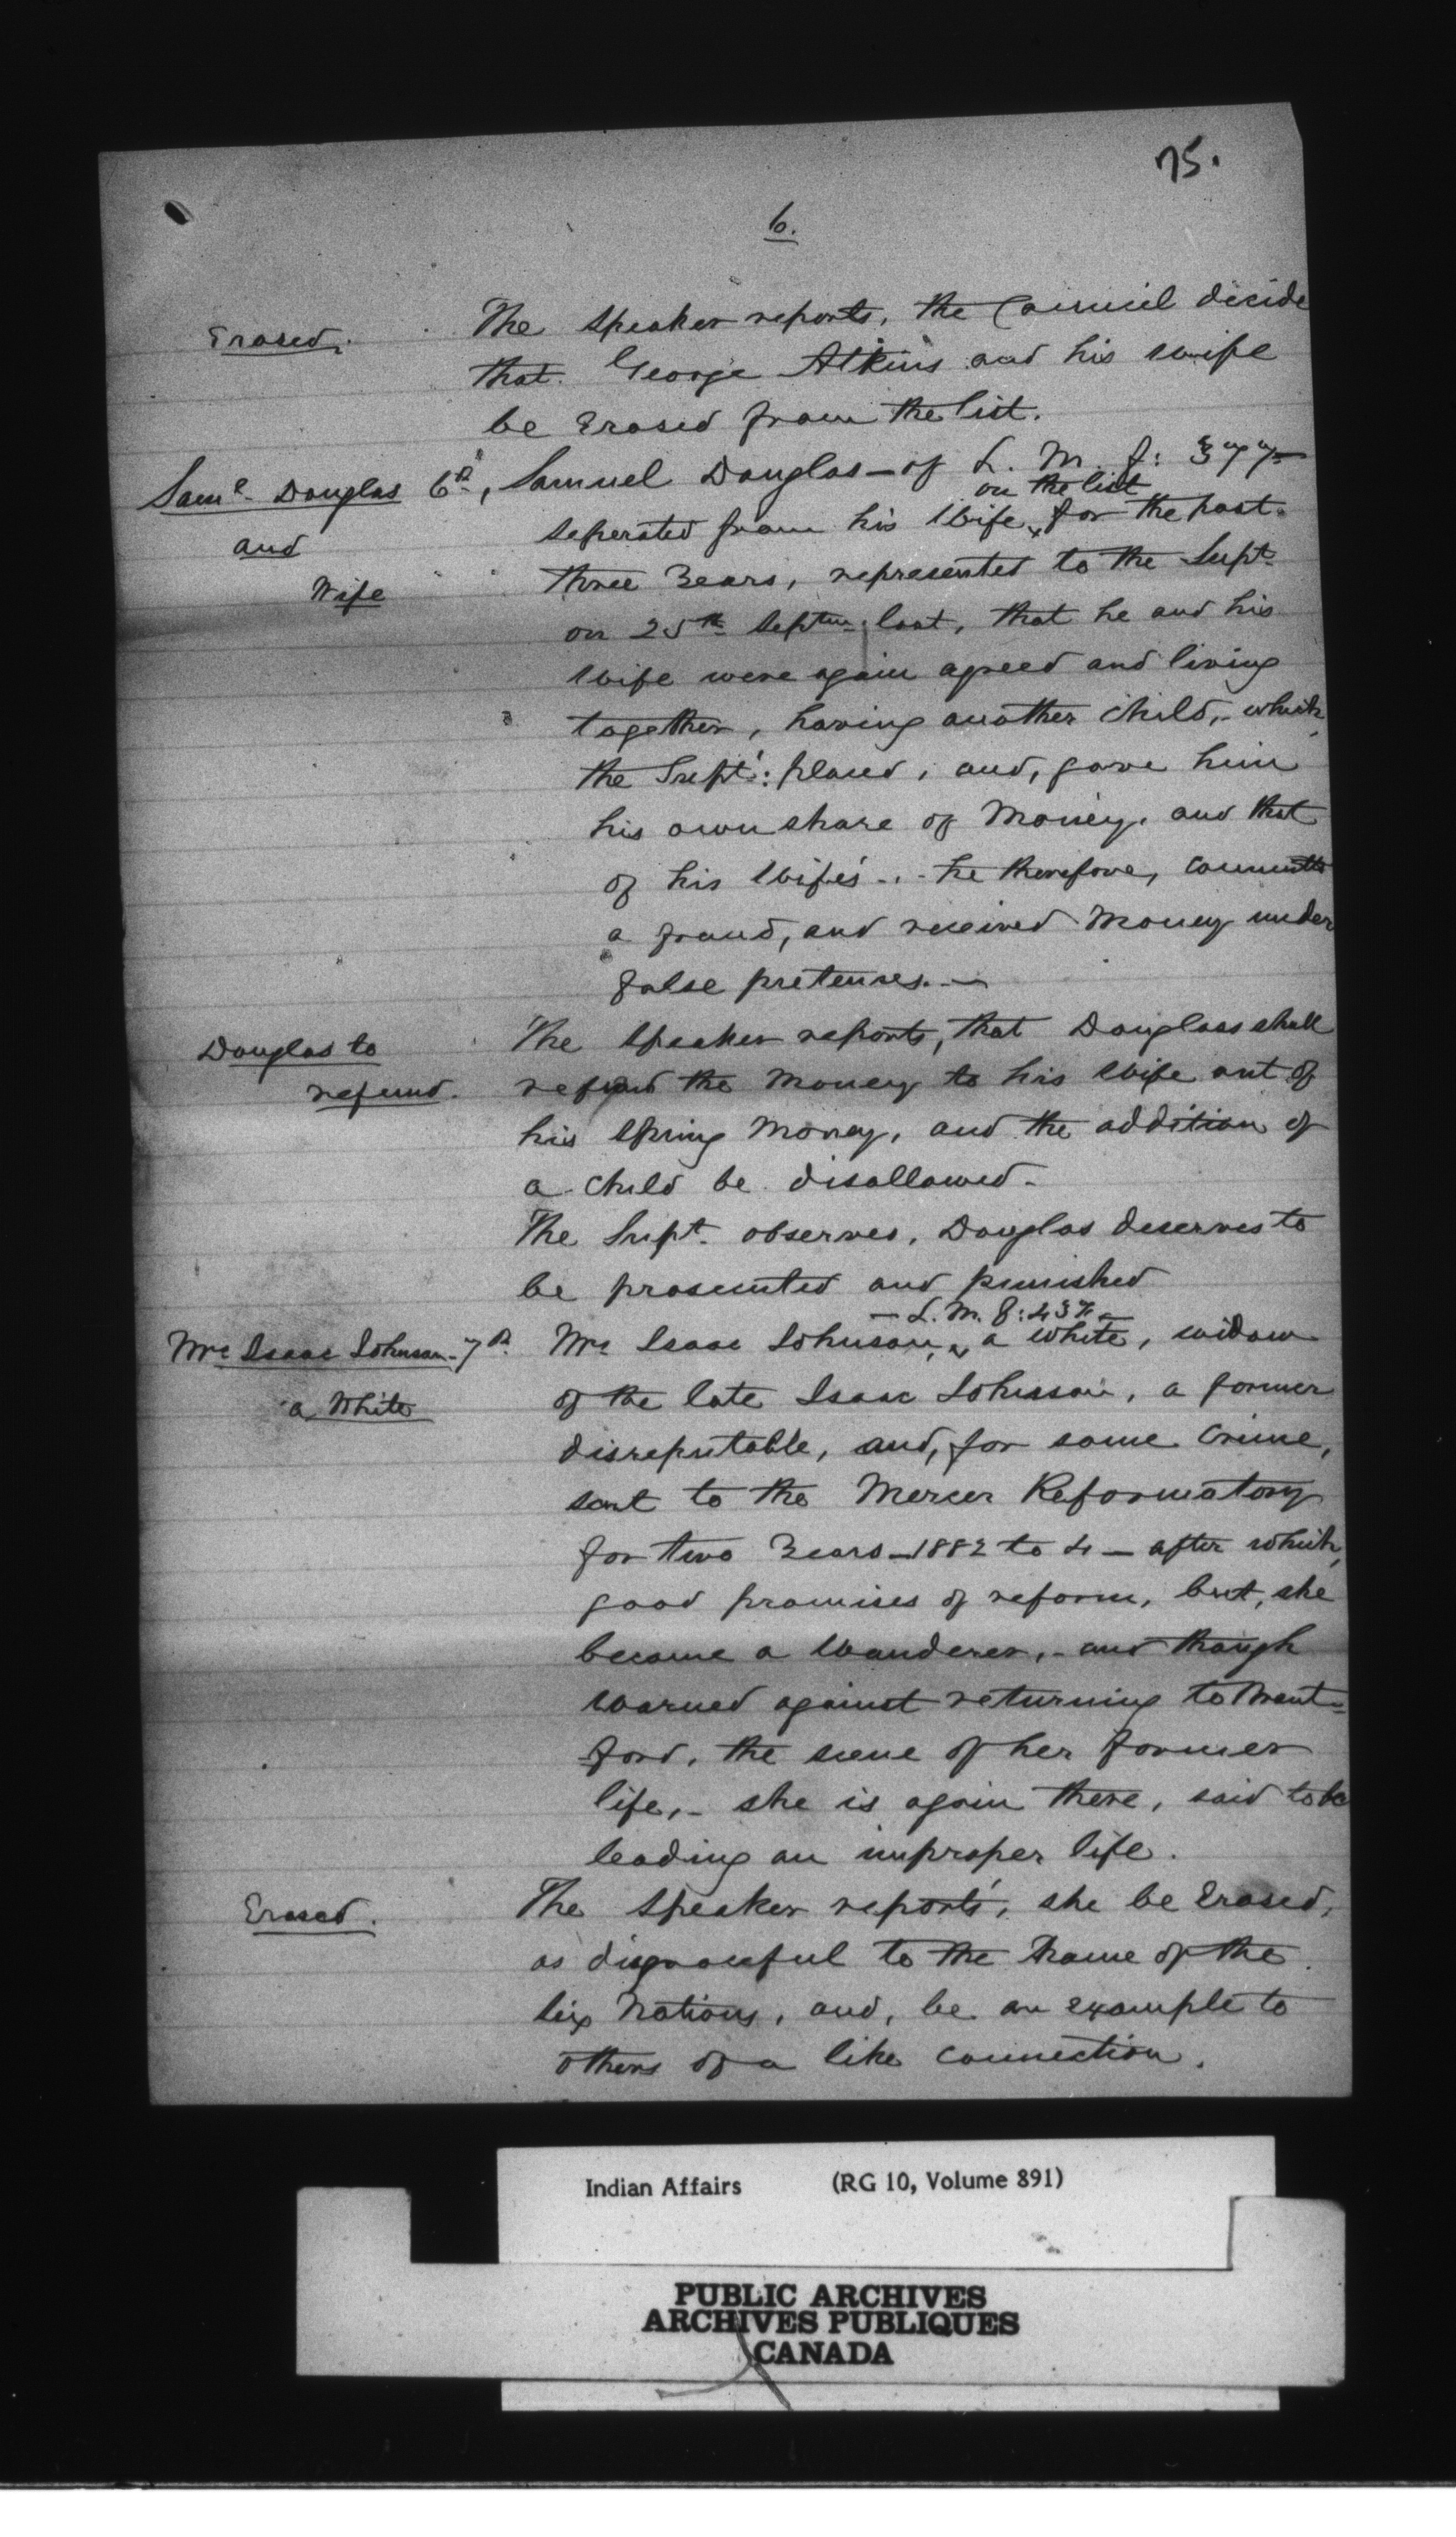 75.
6.
Erased. The Speaker reports, the Council decide
that George Atkins and his wife
be Erased from the list.
Saml. Douglas 6th, Samuel Douglas - of L. M. f: 377-
on the list
and seperated from his Wife, for the past
Wife three Years, represented to the Supt.
on 25th Septem. last, that he and his
wife were again agreed and living
together, having another child, - which,
the Supt: placed, and, gave him
his own share of Money, and that
of his Wife's - he therefore, committed
a fraud, and received Money under
false pretences. -
Douglas to The Speaker reports, that Douglass shall
refund. refund the Money to his Wife out of
his Spring Money, and the addition of
a child be disallowed -
The Supt. observes, Douglas deserves to
be prosecuted and punished
- L. M. f: 43
Mrs Isaac Johnson - 7th Mrs Isaac Johnson, a white, widow
a White of the late Isaac Johnson, a former
disreputable, and, for some Crime,
sent to the Mercer Reformatory
for two Years - 1882 to 4 - after which,
good promises of reform, but, she
became a Wanderer, - and though
Warned against returning to Brant=
ford, the scene of her former
life, - she is again there, said to be
leading an improper life.
Erased. The Speaker reports, she be Erased,
as disgraceful to the Name of the
Six Nations, and, be an example to
others of a like connection.
Indian Affairs (RG 10, Volume 891)
PUBLIC ARCHIVES
ARCHIVES PUBLIQUES
CANADA